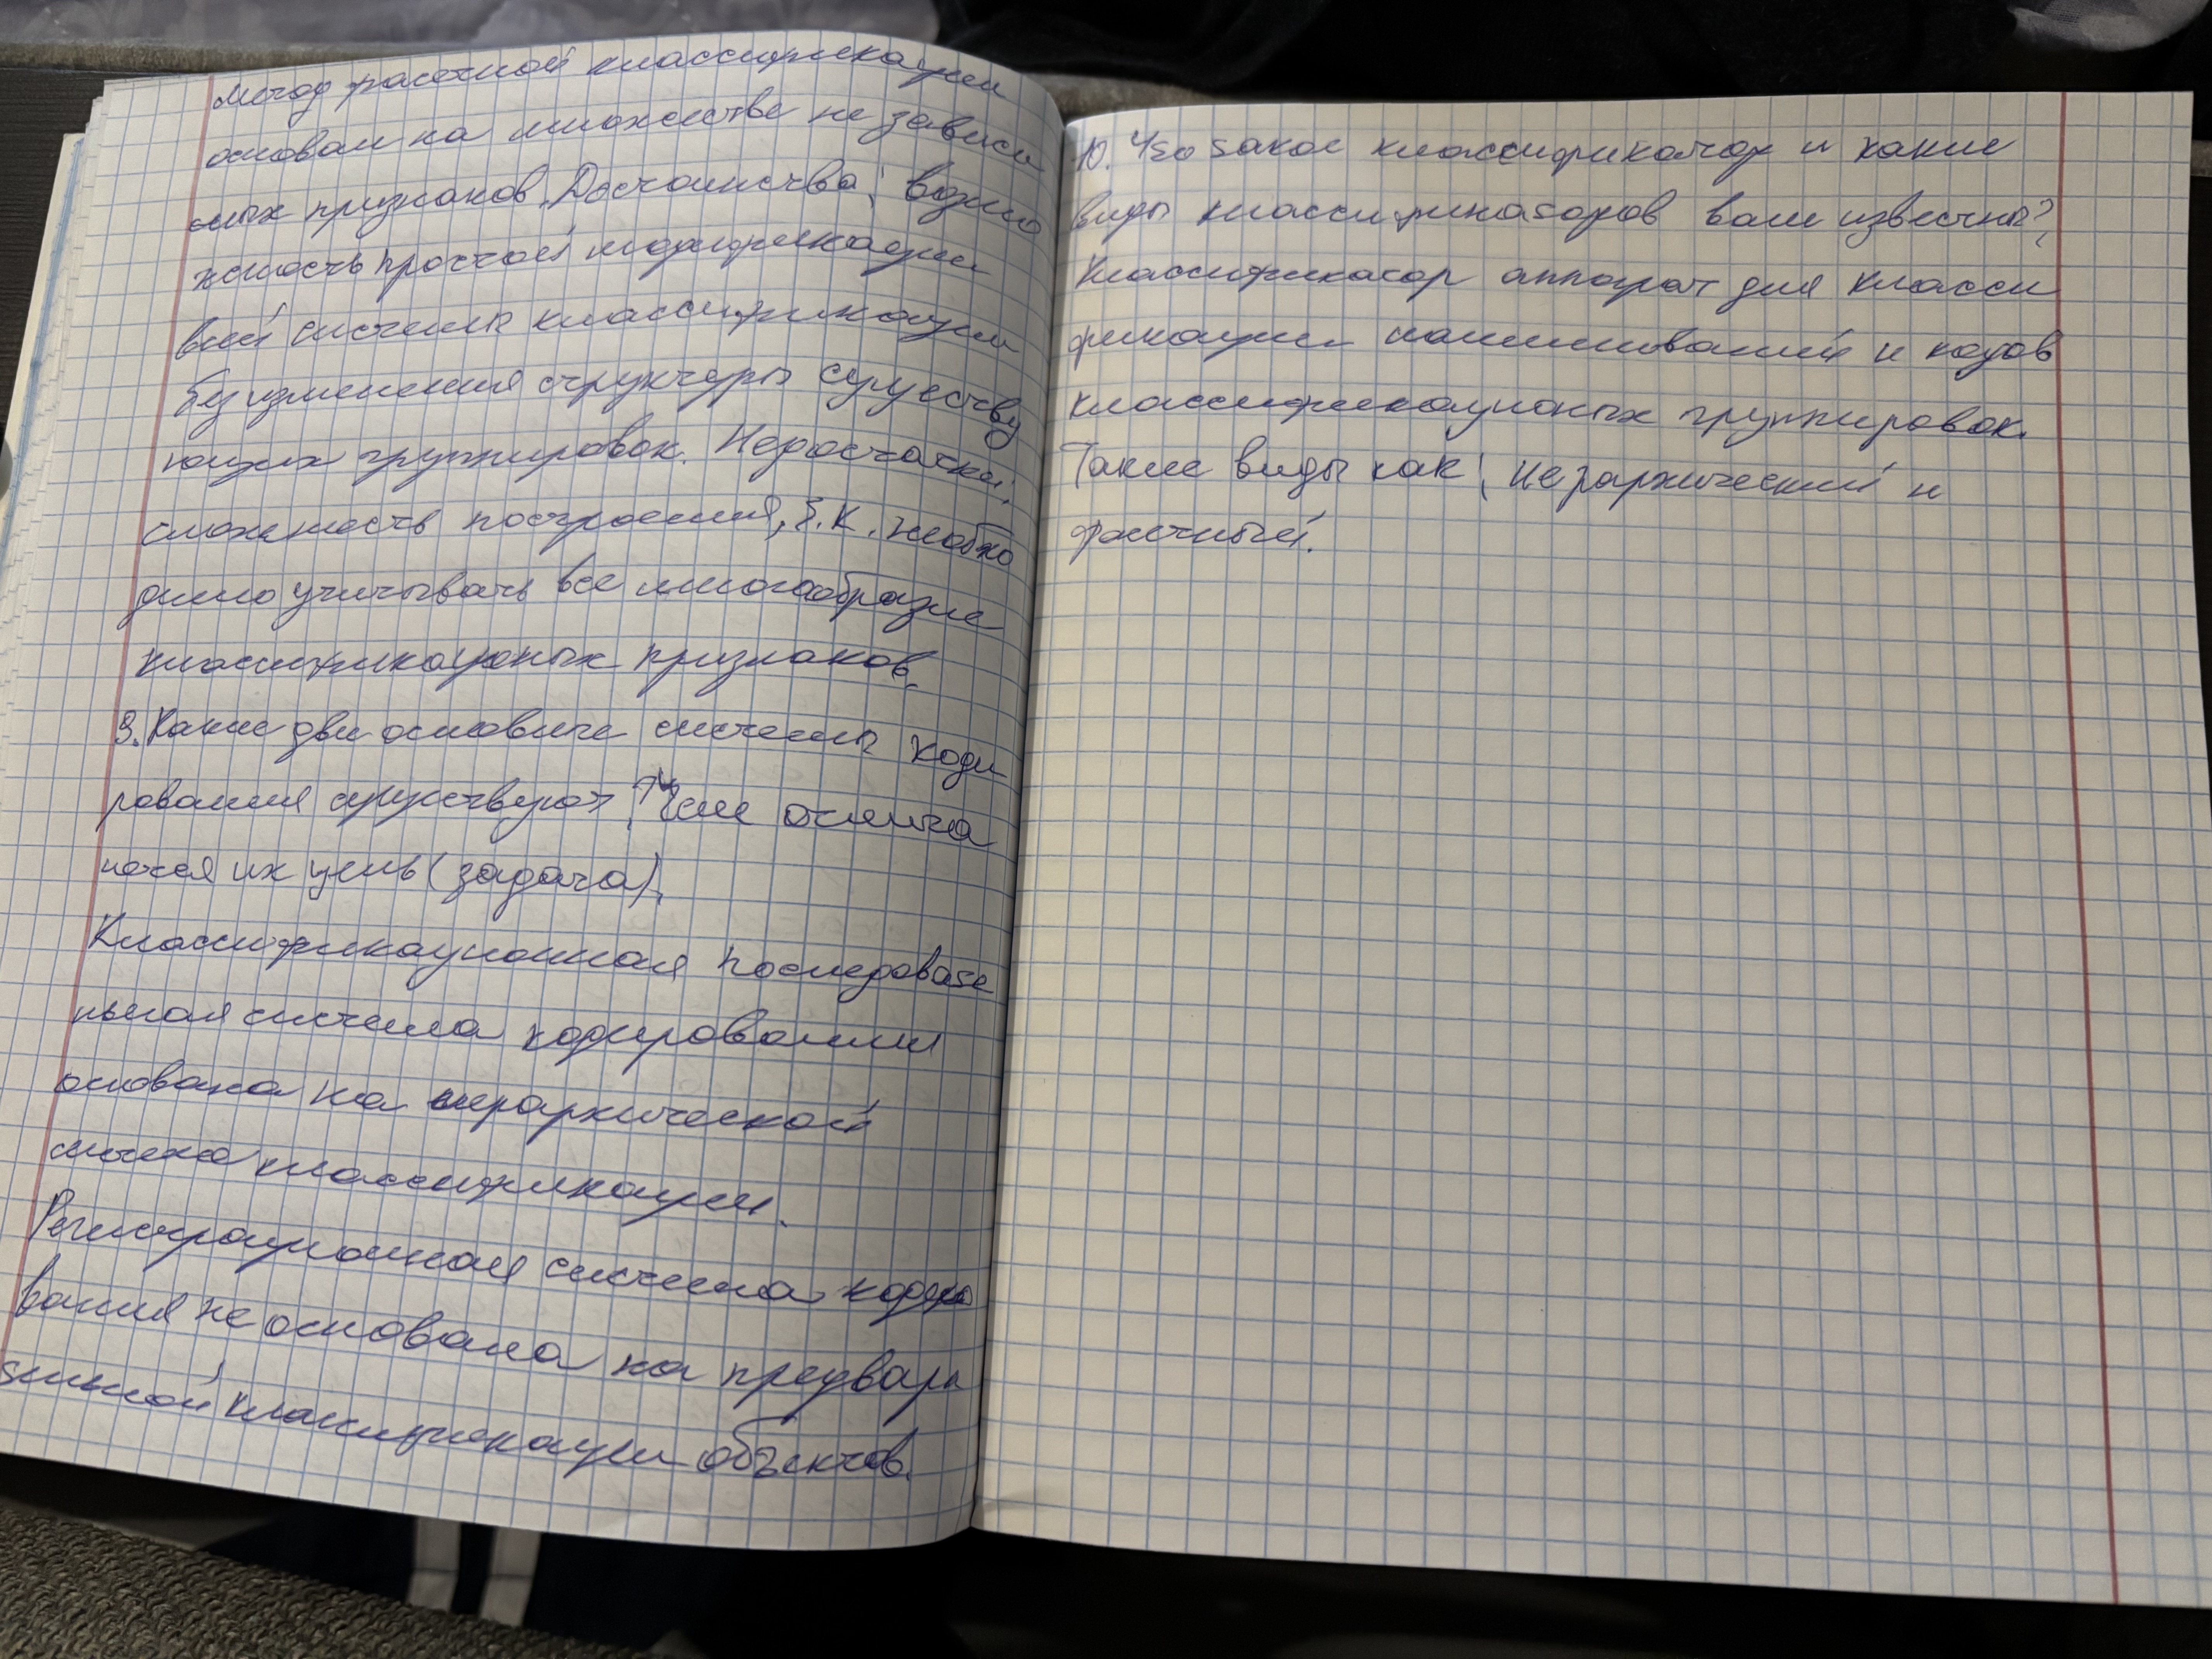 Метод фасетной классификации
основан на множестве не зависи
мых признаков. Достоинства: возмо
жность простой модификации
всей системы классификации
без изменения структуры существу
ющих группировок. Недостатки:
сложность построения, т.к. необхо
димо учитывать все многообразие
классификационых признаков.
9. Какие две основные системы коди
рования существуют? Чем отлича
ются их цель (задача).
Классификационная последовате
льная система кодирования
основана на иерархической
классификации.
Регистрационная система кодиро
вания не основана на предвари
тельной классификации объектов.
10. Что такое классификатор и какие
виды классификаторов вам известны?
Классификатор аппарат для класси
фикации наименований и кодов
классификационых группировок.
Такие виды как: иерархический и
фасетный.